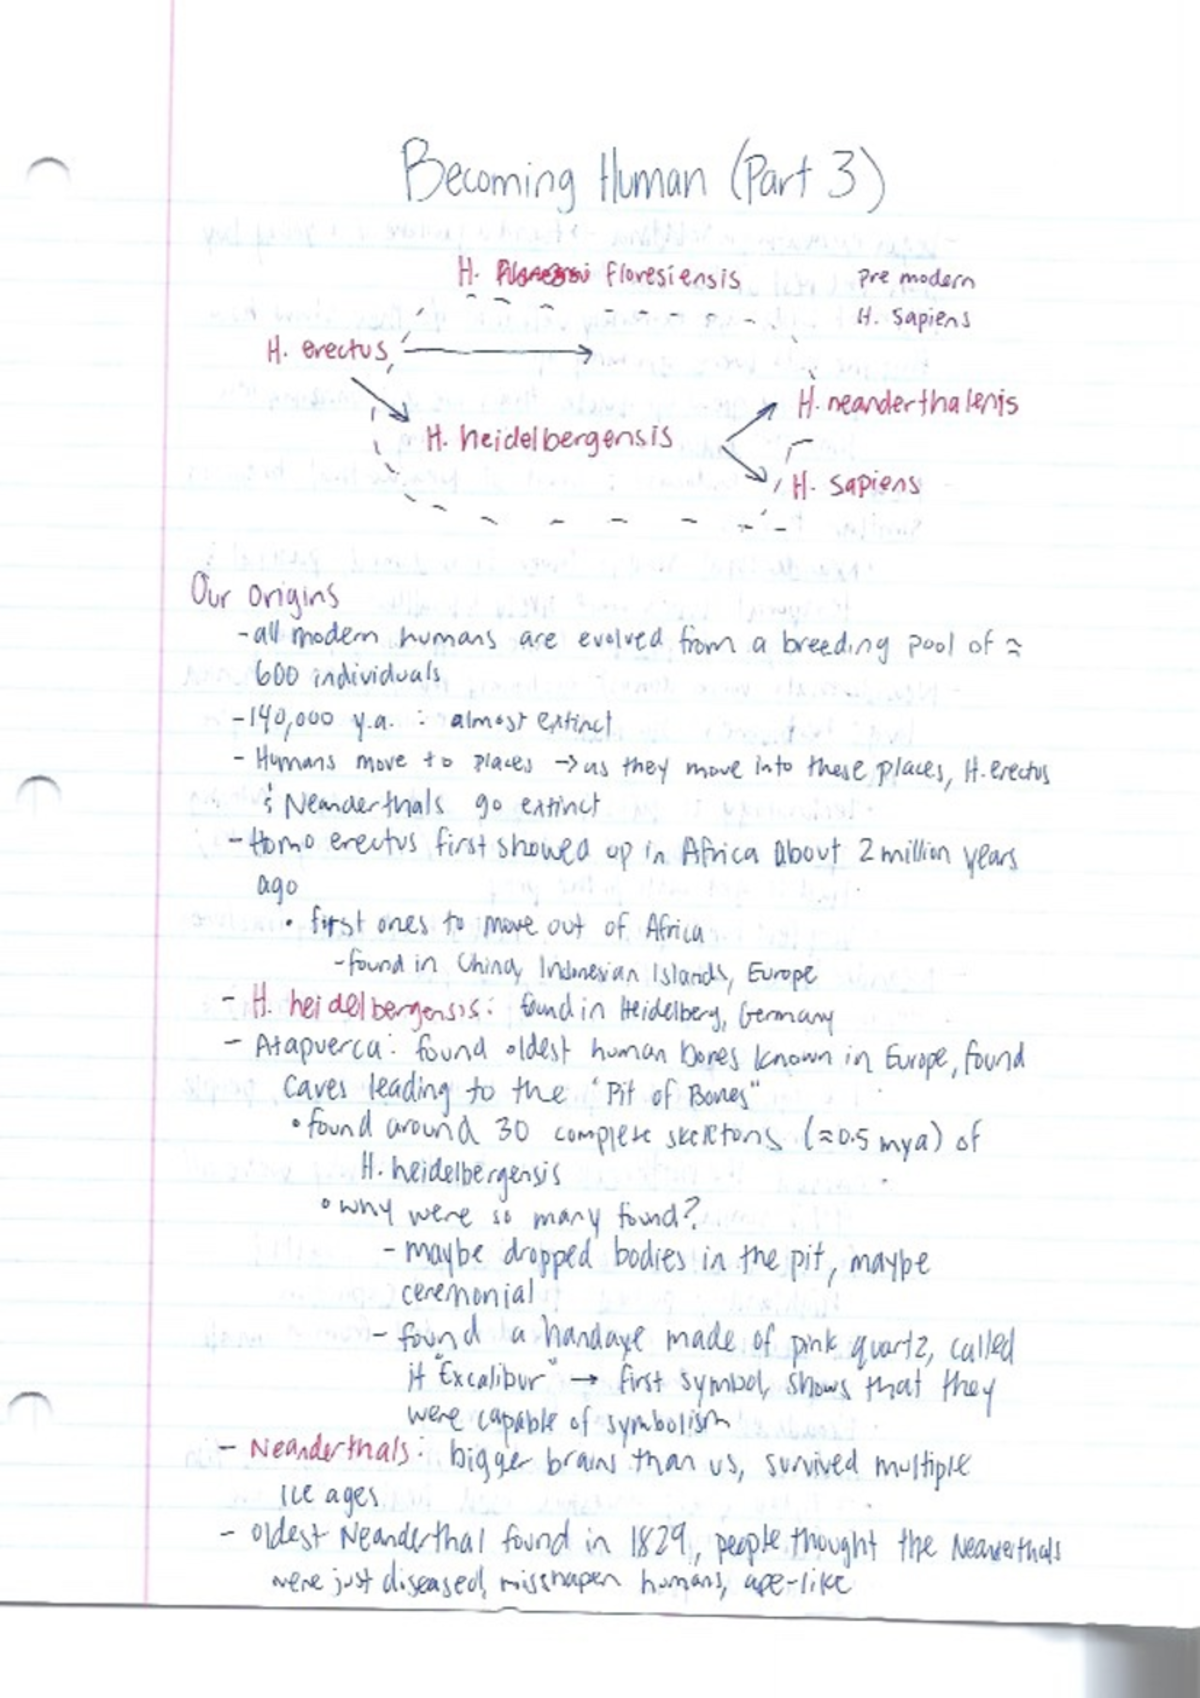 Becoming Human (Part 3)
H. floresiensis
pre modern
H. sapiens
H. erectus
H. neanderthalenis
H. heidelbergensis
H. sapiens
Our origins
-all modern humans are evolved from a breeding pool of ≈
600 individuals
-140,000 y.a. : almost extinct
- Humans move to places → as they move into these places, H. erectus
& Neanderthals go extinct
- Homo erectus first showed up in Africa about 2 million years
ago
• first ones to move out of Africa
-found in China, Indonesian Islands, Europe
- H. heidelbergensis: found in Heidelberg, Germany
- Atapuerca: found oldest human bones known in Europe, found
caves leading to the "Pit of Bones"
• found around 30 complete skeletons (≈0.5 mya) of
H. heidelbergensis
• why were so many found?
- maybe dropped bodies in the pit, maybe
ceremonial
- found a handaxe made of pink quartz, called
it "Excalibur" → first symbol, shows that they
were capable of symbolism
- Neanderthals: bigger brains than us, survived multiple
ice ages
- oldest Neanderthal found in 1829, people thought the Neanderthals
were just diseased, misshapen humans, ape-like